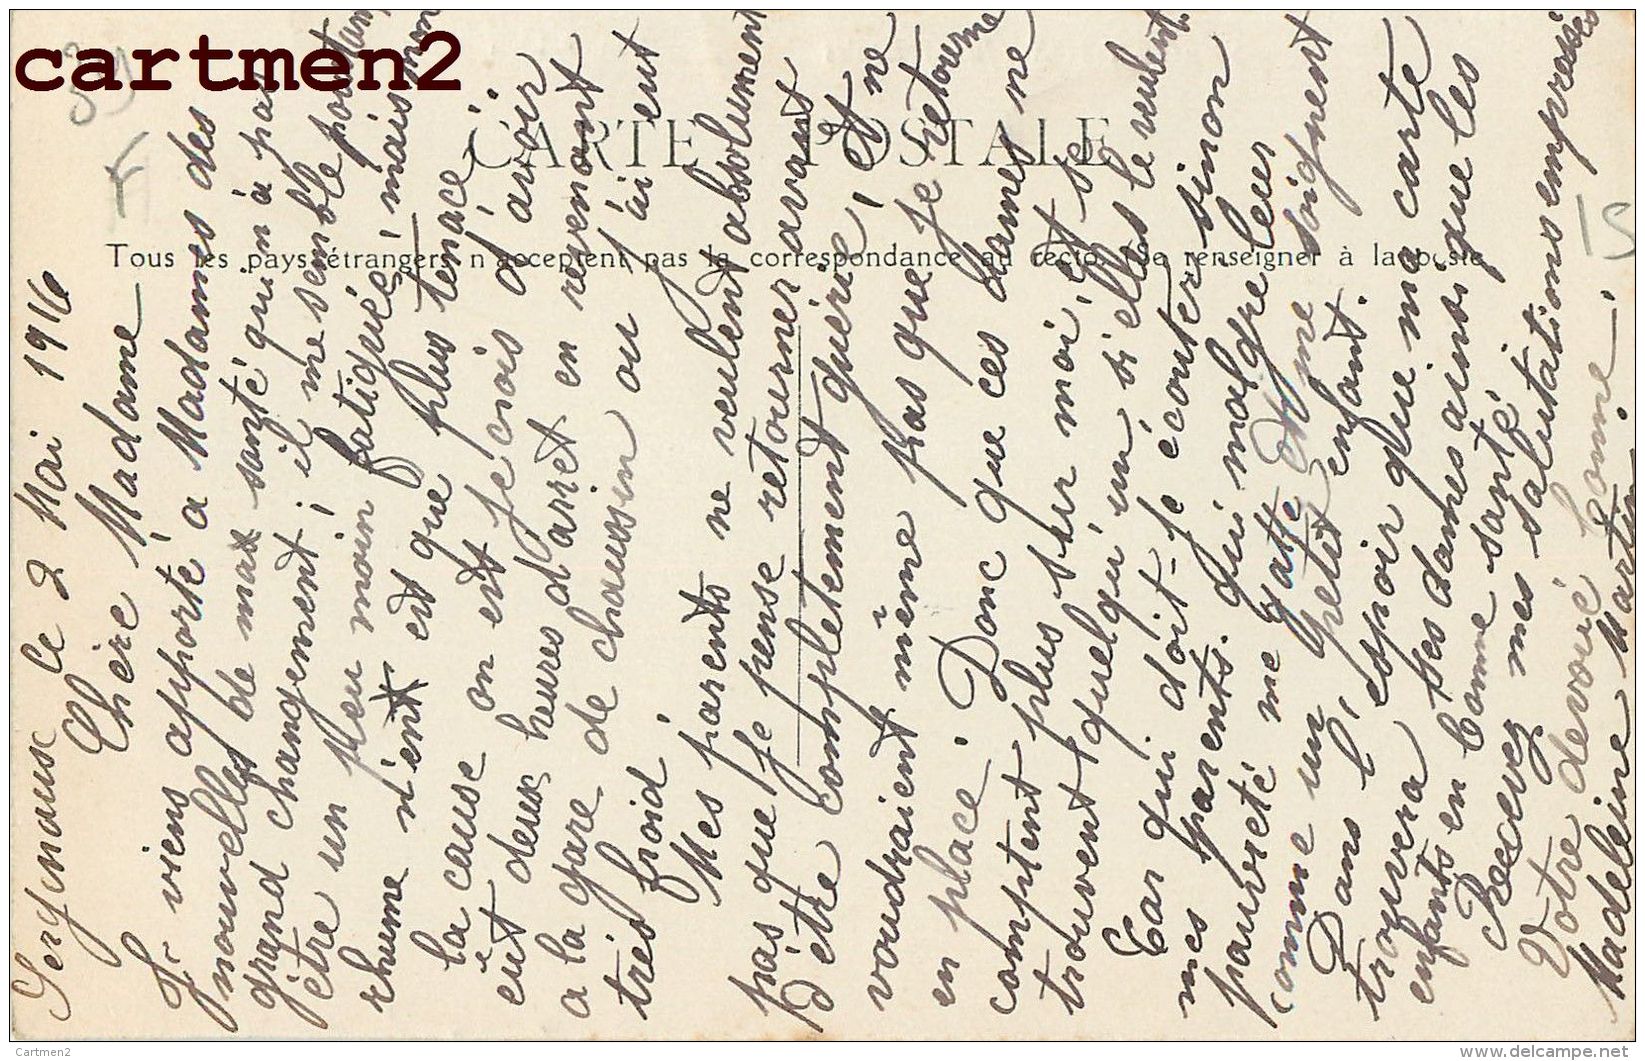 cartmen2
39
F
15
CARTE POSTALE
Tous les pays étrangers n'acceptent pas la correspondance au recto. (Se renseigner à la poste
Sergenaux le 2 Mai 1916
Chère Madame
Je viens apporté a Madames des
nouvelles de max santé qui n'a pas
grand changement; il me semble pourtant
être un peu moin fatiguée, mais mon
rhume n'ent est que plus tenace.
la cause on est je crois d'avoir
eut deux heures d'arret en revenant
a la gare de chaussin ou j'ai eut
très froid.
Mes parents ne veulent absolument
pas que je pense retourner avant
d'être complètement guérie, et ne
voudraient même pas que je retourne
en place. Donc que ces dames ne
comptent plus sur moi, et se
trouvent quelqu'un si elles le veulent.
Car qui doit-je écouter sinon
mes parents. qui malgré leur
pauvreté me gatte et me soignent
comme un petit enfant.
Dans l'espoir que ma carte
trouvera ses dames ainsi que les
enfants en bonne santé.
Recevez mes salutations empressées
Votre dévoué bonne.
Madeleine Martin
Cartmen2
delcampe.net